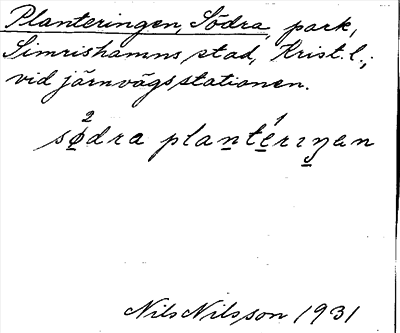 Planteringen, Södra, park,
Simrishamns stad, Krist. l.;
vid järnvägsstationen.
sø̱²dra plan̲te̲¹rɪŋ̲an
Nils Nilsson 1931